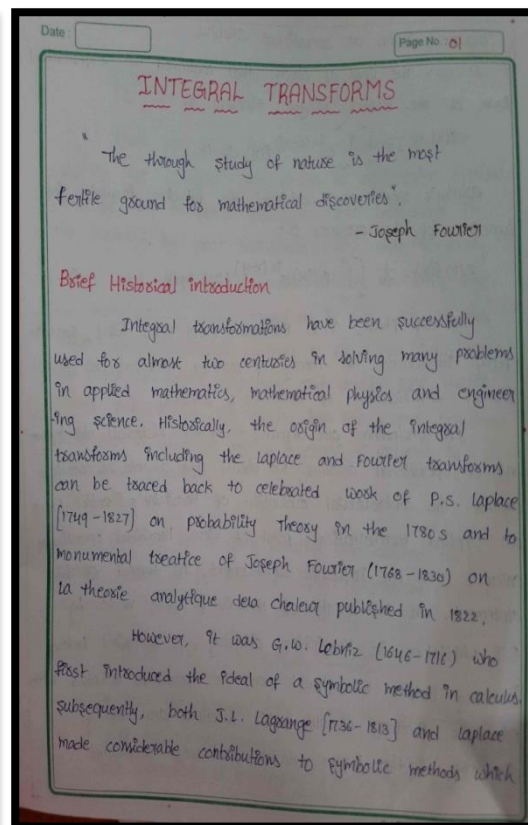 Date:
Page No.: 01
INTEGRAL TRANSFORMS
"The through study of nature is the most
fertile ground for mathematical discoveries".
- Joseph Fourier
Brief Historical introduction
Integral transformations have been successfully
used for almost two centuries in solving many problems
in applied mathematics, mathematical physics and engineer
-ing science. Historically, the origin of the integral
transforms including the laplace and Fourier transforms
can be traced back to celebrated work of P.S. laplace
[1749-1827] on probability Theory in the 1780s and to
monumental treatice of Joseph Fourier (1768-1830) on
la theorie analytique dela chaleur published in 1822.
However, it was G.W. Lebniz (1646-1716) who
first introduced the ideal of a symbolic method in calculus.
subsequently, both J.L. lagrange [1736-1813] and laplace
made considerable contributions to symbolic methods which